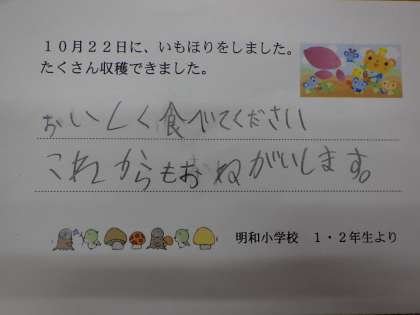 10月22日に、いもほりをしました。
たくさん収穫できました。
おいしく食べてください
これからもおねがいします。
明和小学校 1・2年生より